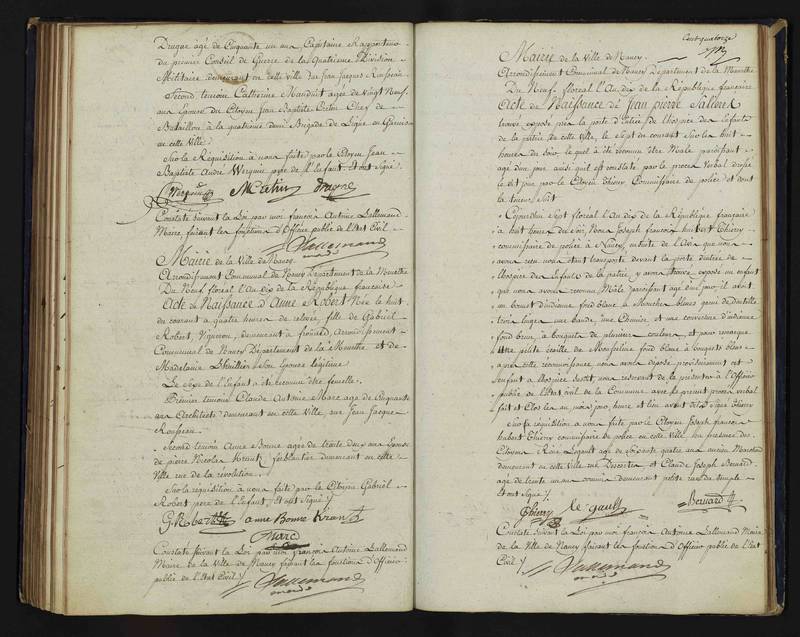 Drugue agé de Cinquante un ans, Capitaine Rapporteur
du premier Conseil de Guerre de la Quatrieme Division
Militaire demeurant en cette ville rue Jean Jacques Rousseau
Second temoin Catherine Manduit agée de vingt Neuf
ans Epouse du Citoyen Jean Baptiste Chef de
Bataillon à la quatrieme demi Brigade de Ligne en Garnison
en cette Ville
Sur la Requisition à nous faite par le Citoyen Jean
Baptiste André pere de l'Enfant. et ont Signé
Constaté suivant la Loi par moi françois Antoine Lallemand
Maire faisant les fonctions d'Officier public de l'Etat Civil
Lallemand
Mairie de la Ville de Nancy
Arrondissement Communal de Nancy Departement de la Meurthe
Du Neuf floréal L'an dix de la République française
Acte de Naissance d'Anne Robert Née le huit
du courant a quatre heures de relevée, fille de Gabriel
Robert, Vigneron, demeurant à frouard, Arrondissement
Communal de Nancy Département de la Meurthe et de
Madelaine Lhuillier Son Epouse légitime
Le Sexe de l'Enfant a été reconnu être femelle.
Premier temoin Claude Antoine Marc agé de Cinquante
ans Architecte demeurant en cette Ville rue Jean Jacques
Rousseau
Second temoin Anne Bonne agée de trente deux ans Epouse
de pierre Nicolas ferblantier demeurant en cette
Ville rue de la révolution
Sur la requisition à nous faite par le Citoyen Gabriel
Robert pere de l'Enfant, et ont Signé
G Robert anne Bonne
Marc
Constaté suivant la Loi par moi françois Antoine Lallemand
Maire de la Ville de Nancy faisant les fonctions d'Officier
public de l'Etat Civil
Lallemand
Cent quatorze
Mairie de la Ville de Nancy
Arrondissement Communal de Nancy Département de la Meurthe
Du Neuf floréal l'An dix de la République française
Acte de Naissance de Jean pierre
trouvé exposé près la porte d'Entrée de l'hospice des Enfants
de la patrie de cette ville, le Sept du courant sur les huit
heures du Soir, lequel a été reconnu être Male paroissant
agé d'un jour ainsi qu'il est constaté par le procès verbal dressé
le dit jour par le Citoyen Thiery Commissaire de police et dont
la teneur suit
Cejourd'hui Sept floréal l'An dix de la République française
à huit heures du Soir, Nous Joseph françois hubert Thiery
commissaire de police à Nancy, sur l'avis que nous
avons reçu nous étant transporté devant la porte d'entrée de
l'hospice des Enfants de la patrie, y avons trouvé exposé un enfant
que nous avons reconnu Mâle paroissant agé d'un jour, il avoit
un bonnet d'indienne fond blanc à Mouches bleues garni de dentelle
trois langes une bande, une Chemise, et une couverture d'indienne
fond brun, à bouquets de plusieurs couleurs, et pour remarque
une petite de Mousseline fond blanc à bouquets bleus
après cette reconnoissance nous avons déposé provisoirement cet
enfant a L'hospice susdit nous réservant de le présenter à l'Officier
public de l'Etat civil de la Commune avec le présent procès verbal
fait et Clos les an, mois, jour heure et lieu avant dit Signé Thiery
Sur la requisition a nous faite par le Citoyen Joseph françois
hubert Thiery commissaire de police en cette ville en présence des
Citoyens agé de soixante quatre ans ancien
demeurant en cette Ville rue Descartes et Claude Joseph Bernard
agé de trente un ans demeurant petite rue du temple
Et ont Signé
Thiery le gault Bernard
Constaté suivant la Loi par moi françois Antoine Lallemand Maire
de la Ville de Nancy faisant les fonctions d'Officier public de l'Etat
Civil
Lallemand